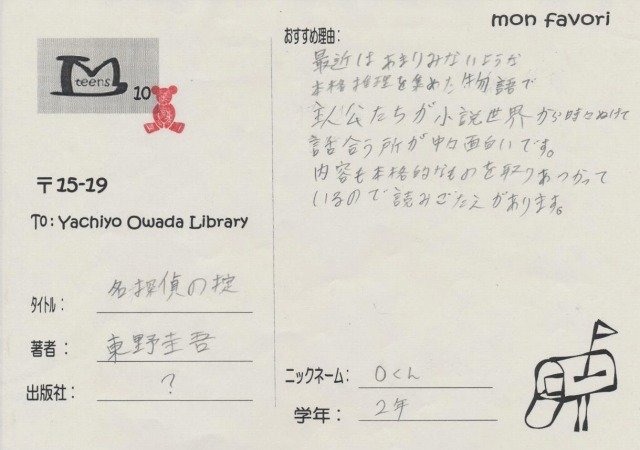 mon favori
teens
10
〒15-19
To: Yachiyo Owada Library
タイトル: 名探偵の掟
著者: 東野圭吾
出版社: ?
おすすめ理由:
最近はあまりみないような
本格推理を集めた物語で
主人公たちが小説世界から時々ぬけて
話合う所が中々面白いです。
内容も本格的なものを取りあつかって
いるので読みごたえがあります。
ニックネーム: Oくん
学年: 2年